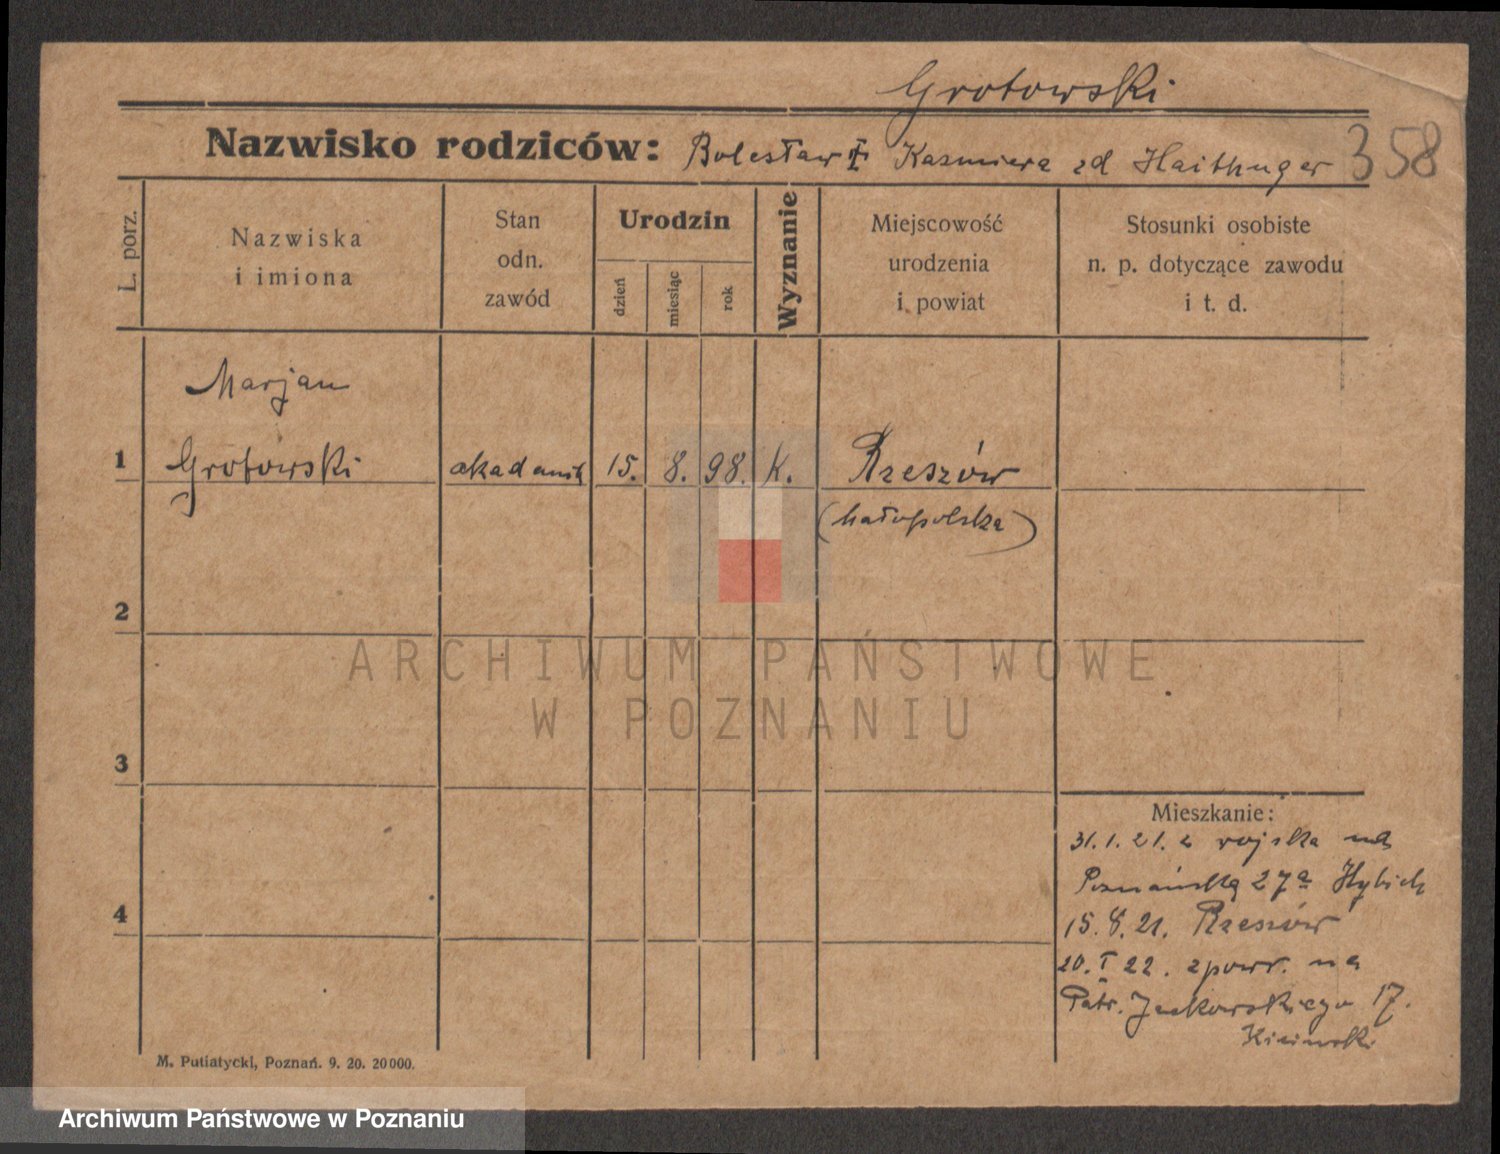 Grotowski
Nazwisko rodziców: Bolesław Kazmiera zd Haithuger 358
L. porz.
Nazwiska
i imiona
Stan
odn.
zawód
Urodzin
dzień
miesiąc
rok
Wyznanie
Miejscowość
urodzenia
i powiat
Stosunki osobiste
n. p. dotyczące zawodu
i t. d.
Marjan
1 Grotowski akademik 15. 8. 98. K. Rzeszów
(Małopolska)
2
3
4
ARCHIWUM PAŃSTWOWE
W POZNANIU
Mieszkanie:
31.1.21. z wojska na
Poznańską 27a
15.8.21. Rzeszów
20. I 22. z powr. na
Patr. Jackowskiego 17.
M. Putiatycki, Poznań. 9. 20. 20000.
Archiwum Państwowe w Poznaniu